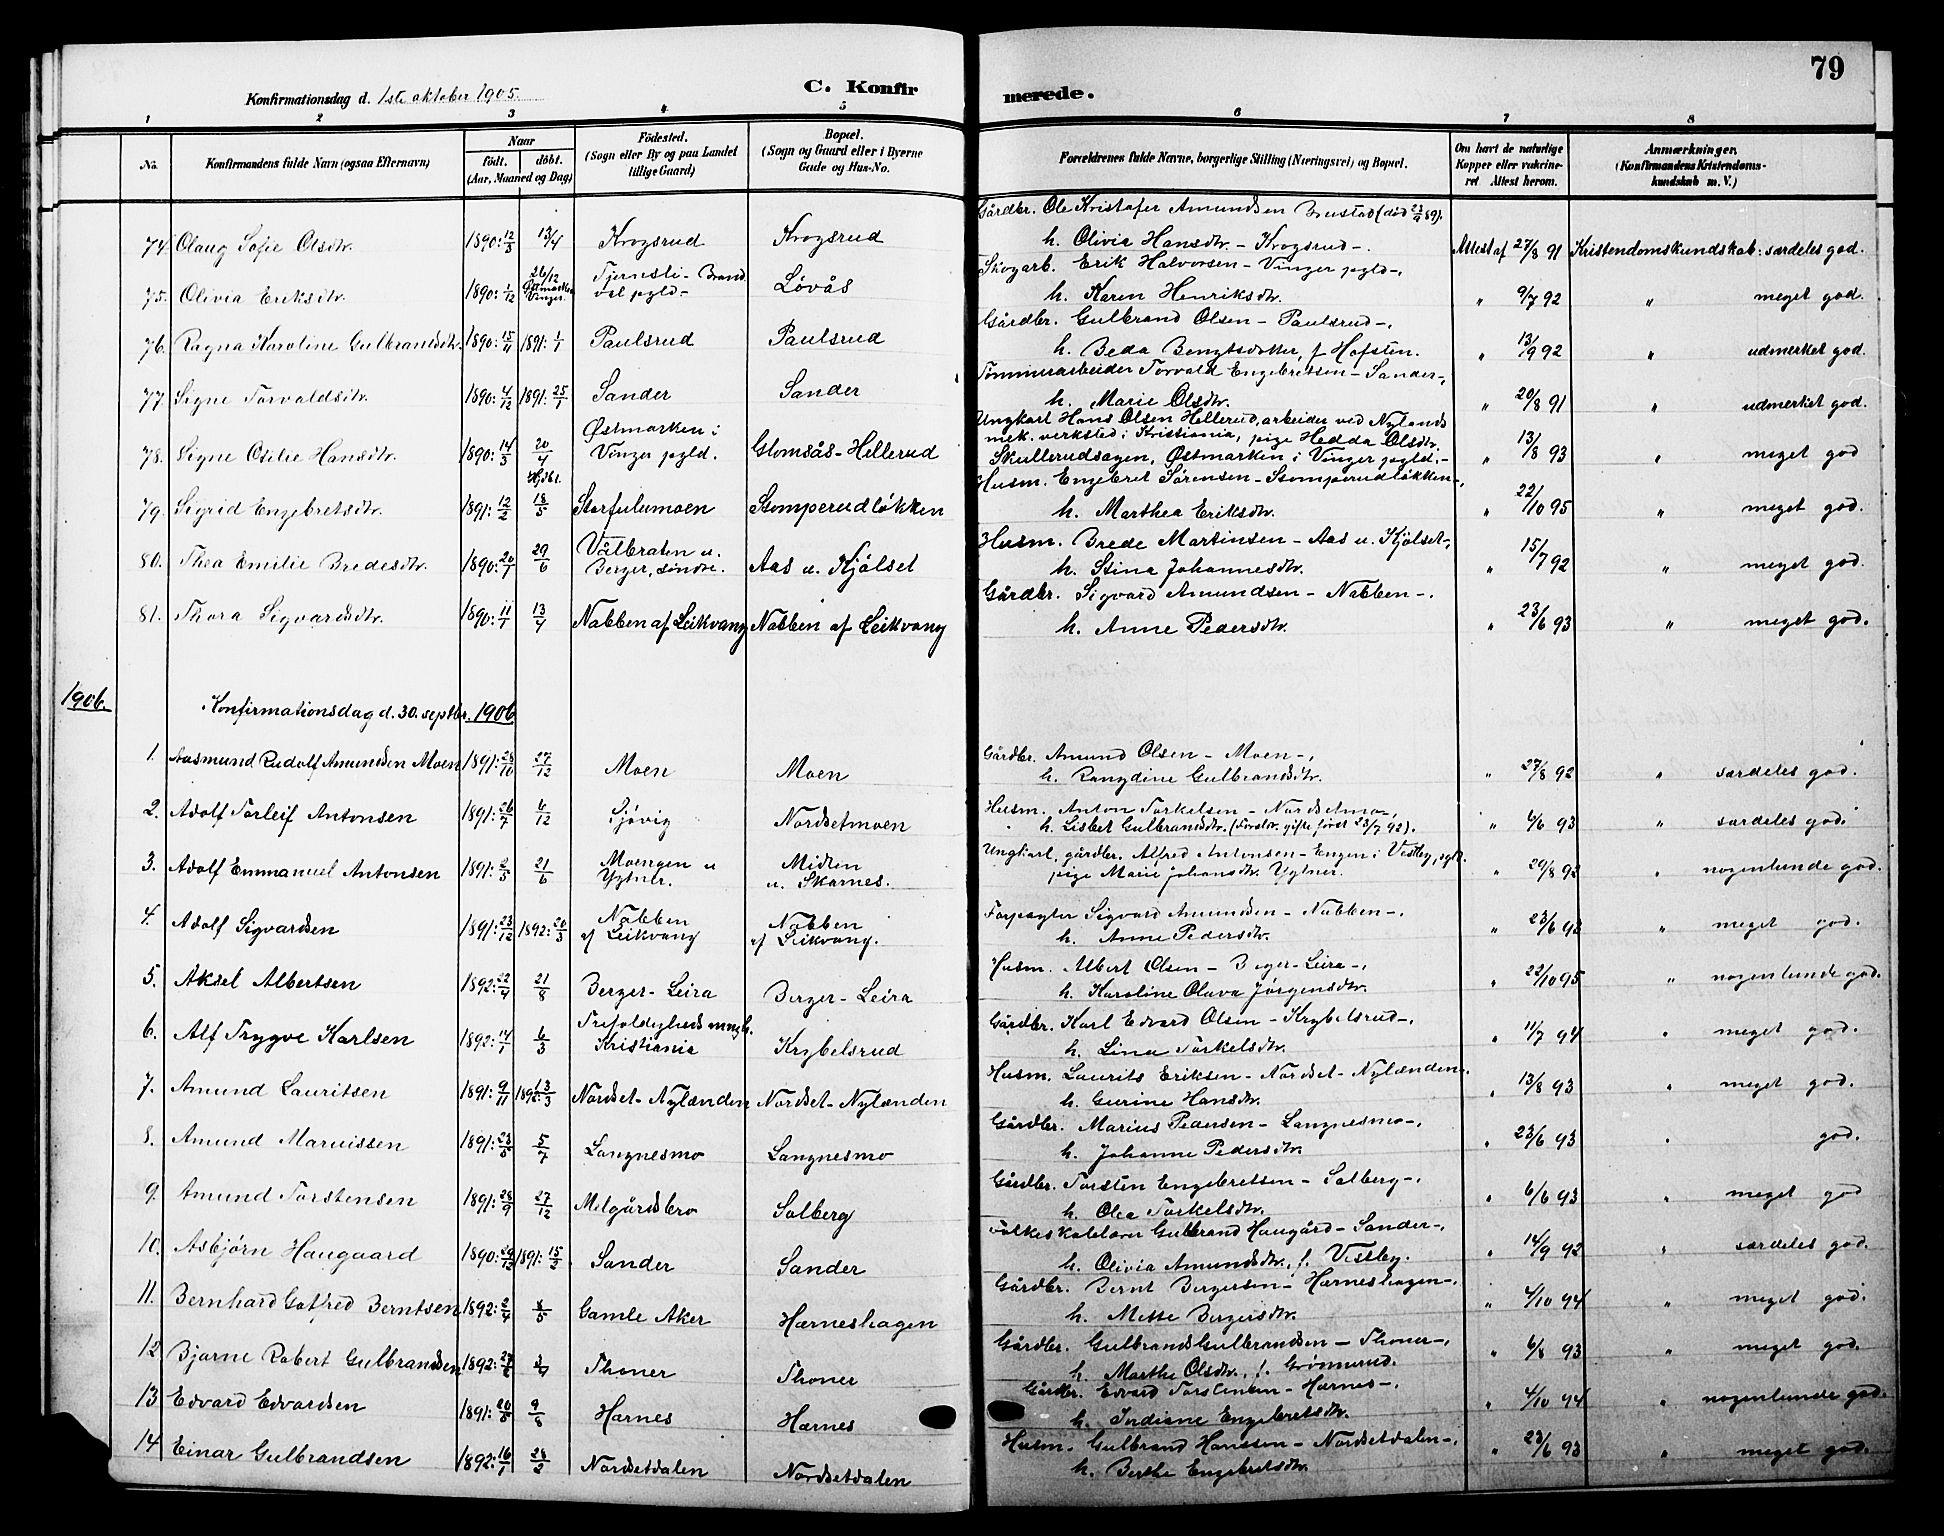 79
Konfirmationsdag d. 1ste oktober 1905.
C. Konfir
merede.
1 2 3 4 5 6 7 8
No. Konfirmandens fulde Navn (ogsaa Efternavn) Naar födt. döbt. (Aar, Maaned og Dag) Födested. (Sogn eller By og paa Landet tillige Gaard) Bopæl. (Sogn og Gaard eller i Byerne Gade og Hus-No. Forældrenes fulde Navne, borgerlige Stilling (Næringsvei) og Bopæl. Om havt de naturlige Kopper eller vakcineret Attest herom. Anmærkninger. (Konfirmandens Kristendomskundskab m. V.)
Gårdbr. Ole Kristofer Amundsen Brustad (död 23/9 89).
74. Olaug Sofie Olsdtr. 1890: 12/3 13/4 Krogsrud Krogsrud h. Olivia Hansdtr. - Krogsrud -. Attest af 27/8 91 Kristendomskundskab: særdeles god.
26/12 Tjernsli - Brand Skogarb. Erik Halvorsen - Vinger pgld -,
75. Olivia Eriksdtr. 1890: 1/12 Østmarken Vinger. val pgld - Lövås h. Karen Henriksdtr. " 9/7 92 " meget god.
Gårdbr. Gulbrand Olsen - Paulsrud -,
76. Ragna Karoline Gulbrandsdtr. 1890: 15/11 1891: 1/1 Paulsrud Paulsrud h. Beda Bengtsdotter, f. Hofsten. " 13/9 92 " udmerket god.
Tömmerarbeider Torvald Engebretsen - Sander -,
77. Signe Torvaldsdtr. 1890: 4/12 1891: 25/1 Sander Sander h. Marie Olsdtr. " 20/8 91 " udmerket god.
Ungkarl Hans Olsen Hellerud, arbeider ved Nylands
Østmarken i mek. verksted i Kristiania, pige Hedda Olsdtr.
78. Signe Otelie Hansdtr. 1890: 14/3 20/4 Vinger pgld. Glomsås - Hellerud Skullerudsagen, Østmarken i Vinger pgld. - " 13/8 93 " meget god
Hjdbt. Husm. Engebret Sörensen - Stomperudlökken -,
79. Sigrid Engebretsdtr. 1891: 12/2 18/5 Storfulumoen Stomperudlökken h. Marthea Eriksdtr. " 22/10 95 " meget god.
Vålbraten u. Husm. Brede Martinsen - Aas u. Kjölset -,
80. Thea Emilie Bredesdtr. 1890: 20/1 29/6 Berger, söndre. Aas u. Kjölset h. Stina Johannesdtr. " 15/7 92 " meget god.
Gårdbr. Sigvard Amundsen - Nabben -.
81. Thora Sigvardsdtr. 1890: 11/1 13/4 Nabben af Leikvang Nabben af Leikvang h. Anne Pedersdtr. " 23/6 93 " meget god.
1906. Konfirmationsdag d. 30. septbr. 1906
Gårdbr. Amund Olsen - Moen -,
1. Aasmund Rudolf Amundsen Moen 1891: 28/10 27/12 Moen Moen h. Rangdine Gulbrandsdtr. " 27/8 92 " særdeles god.
Husm. Anton Torkelsen - Nordsetmo -,
2. Adolf Torleif Antonsen 1891: 26/7 6/12 Sjövig Nordsetmoen h. Lisbet Gulbrandsdtr. (Forældr. gifte först 23/7 92). " 4/6 93 " særdeles god.
Moengen u Midtin Ungkarl, gårdbr. Alfred Antonsen - Engen i Vestby,
3. Adolf Emmanuel Antonsen 1891: 2/5 21/6 Ygtner. u. Skarnes. pige Marie Johansdtr. Ygtner. " 29/8 93 " nogenlunde god.
Nabben Nabben Forpagter Sigvard Amundsen - Nabben -.
4. Adolf Sigvardsen 1891: 23/12 1892: 20/3 af Leikvang af Leikvang. h. Anne Pedersdtr. " 23/6 93 " meget god.
Husm. Albert Olsen - Berger - Leira -,
5. Aksel Albertsen 1892: 22/4 21/8 Berger - Leira Berger - Leira h. Karoline Olava Jörgensdtr. " 22/10 95 " nogenlunde god.
Trefoldigheds mngh. Gårdbr. Karl Edvard Olsen - Krybelsrud -,
6. Alf Trygve Karlsen 1892: 14/1 6/3 Kristiania Krybelsrud h. Lina Torkelsdtr. " 11/7 94 " meget god.
Husm. Laurits Eriksen - Nordset - Nylænden -,
7. Amund Lauritsen 1891: 9/11 1892: 13/3 Nordset - Nylænden Nordset - Nylænden h. Gurine Hansdtr. " 13/8 93 " meget god.
Gårdbr. Marius Pedersen - Langnesmo -,
8. Amund Mariussen 1891: 23/5 5/7 Langnesmo Langnesmo h. Johanne Pedersdtr. " 23/6 93 " god.
Gårdbr. Torsten Engebretsen - Solberg -,
9. Amund Torstensen 1891: 28/9 27/12 Melgårdsbro Solberg h. Olea Torkelsdtr. " 6/6 93 " meget god
Folkeskolelærer Gulbrand Haugård - Sander -,
10. Asbjörn Haugaard 1890: 29/12 1891: 15/2 Sander Sander h. Olivia Amundsdtr., f. Vestby. " 14/9 92 " særdeles god.
Gårdbr. Bernt Bergersen - Harneshagen -,
11. Bernhard Gotfred Berntsen 1892: 2/4 8/5 Gamle Aker Harneshagen h. Mette Bergersdtr. " 4/10 94 " meget god.
Gårdbr. Gulbrand Gulbrandsen - Thoner -,
12. Bjarne Robert Gulbrandsen 1892: Thoner Thoner h. Marthe Olsdtr., f. Grönnerud. " 6/8 93 " meget god.
Gårdbr. Edvard Torstensen - Harnes -,
13 Edvard Edvardsen 1891: 20/5 9/8 Harnes Harnes h. Indiane Engebretsdtr. " 4/10 94 " nogenlunde god.
Husm. Gulbrand Hansen - Nordsetdalen -,
14 Einar Gulbrandsen 1892: 16/1 28/2 Nordsetdalen Nordsetdalen h. Berthe Engebretsdtr. " 23/6 93 " meget god.